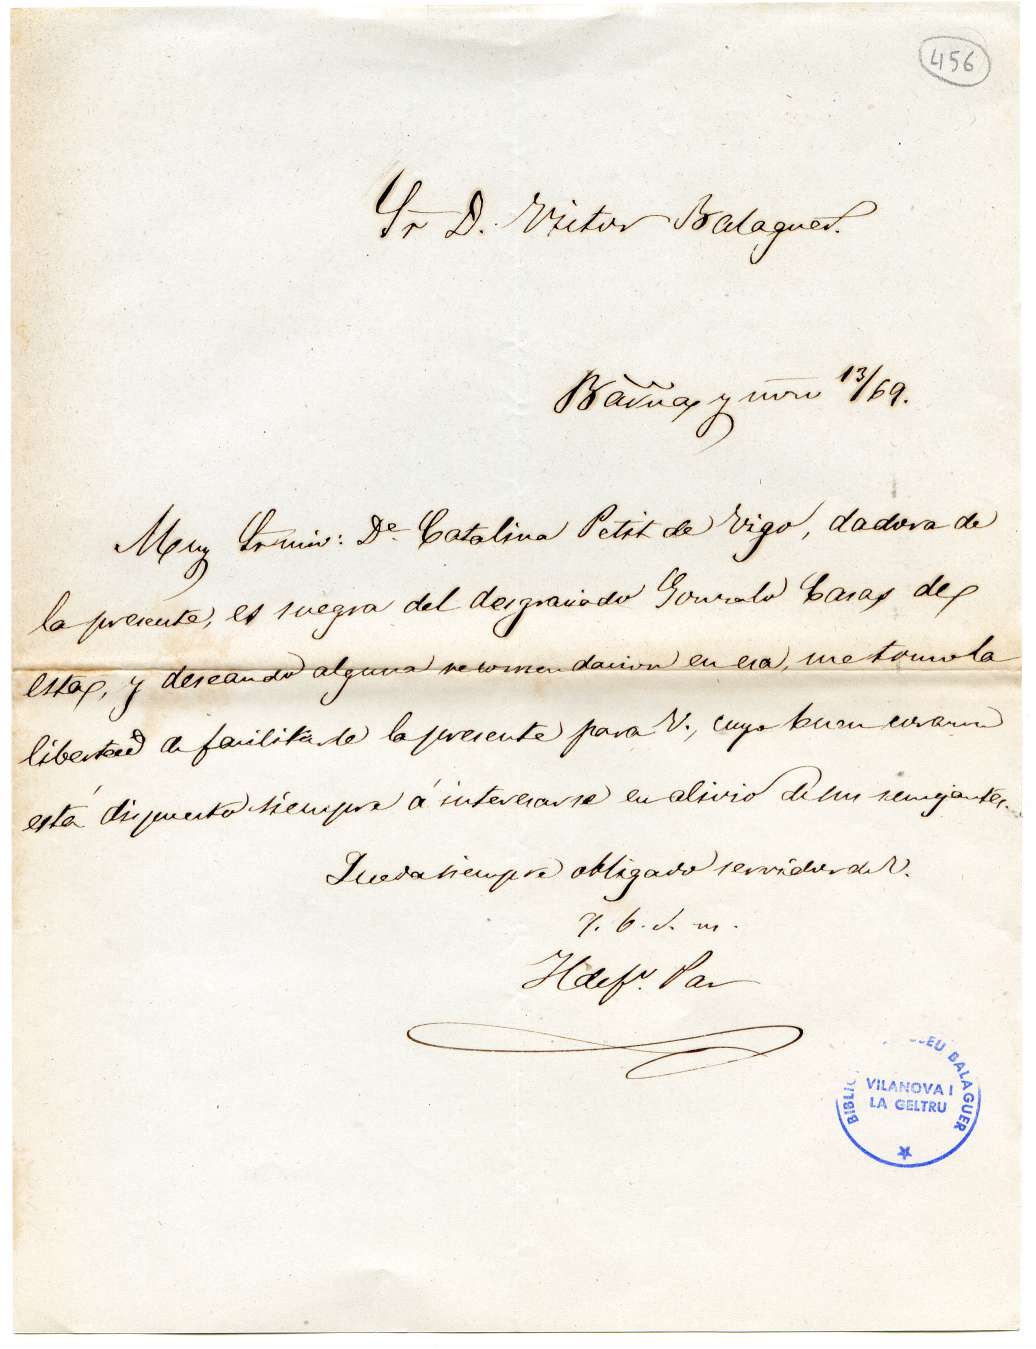 456
Sr D. Victor Balaguer.
Barna y nov 13/69.
Muy Sr mio: Da Catalina Petit de Vigo, dadora de
la presente, es suegra del desgraciado Gonzalo Casas de
esta, y deseando alguna recomendacion en esa, me tomo la
libertad de facilitarle la presente para V., cuyo buen corazon
está dispuesto siempre á interesarse en alivio de sus semejantes.
Queda siempre obligado servidor de V.
q. b. s. m.
Ildefo. Par
MUSEU BALAGUER
VILANOVA I
LA GELTRU